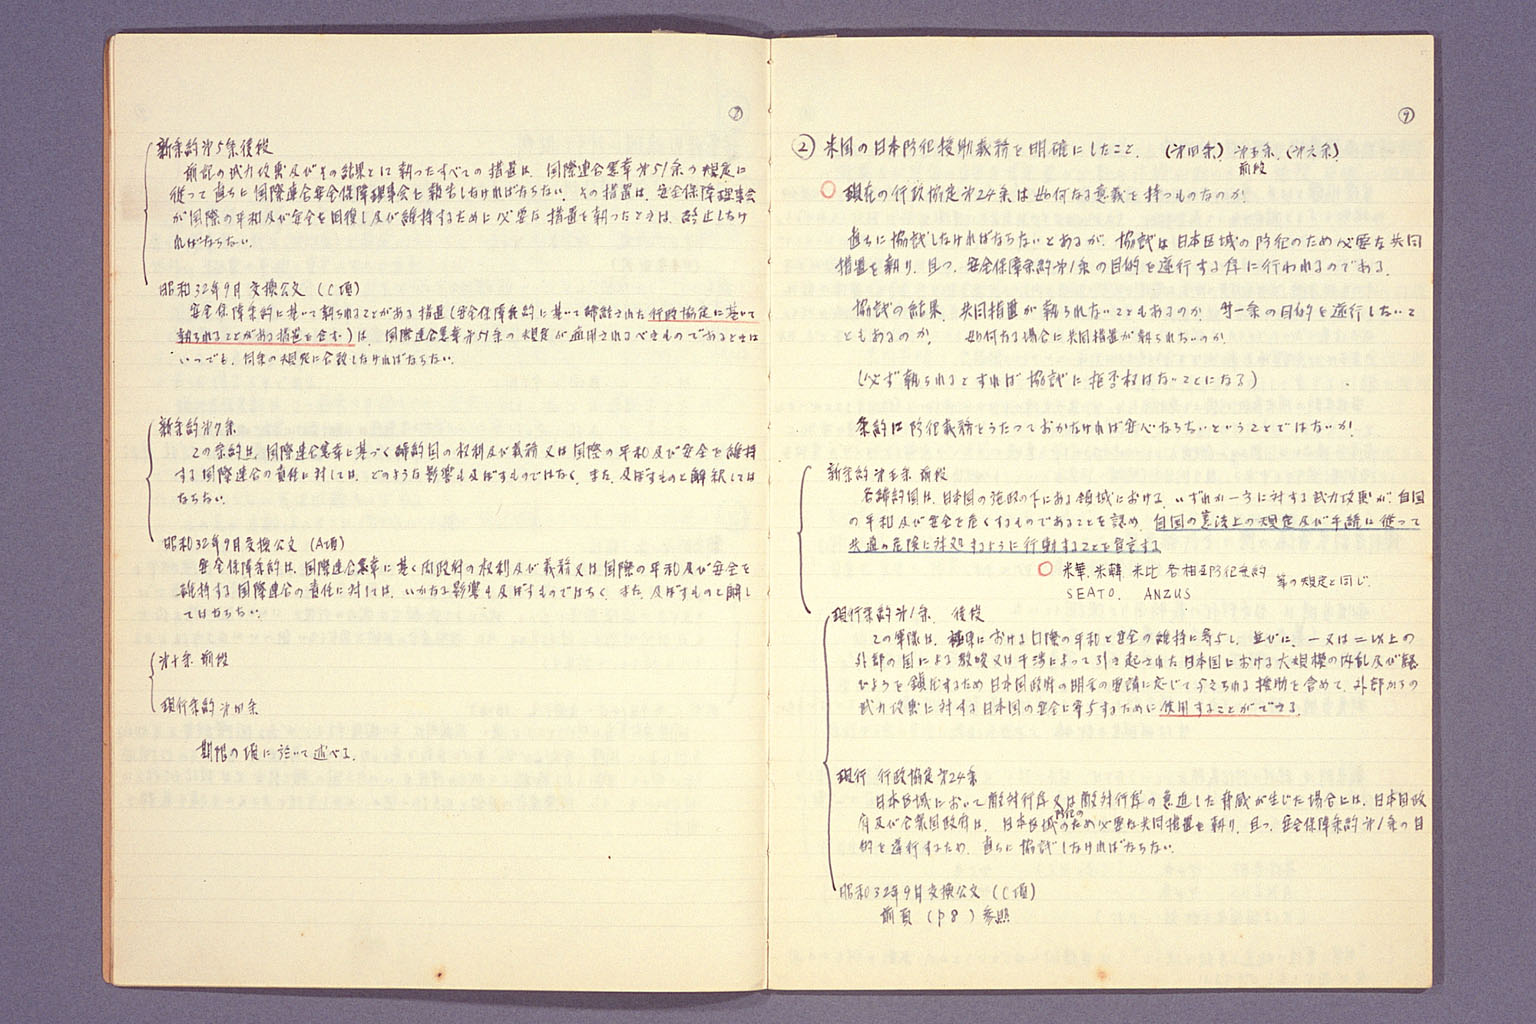 ⑧
新条約第5条後段
前記の武力攻撃及びその結果として執ったすべての措置は、国際連合憲章第51条の規定に
従って直ちに国際連合安全保障理事会に報告しなければならない。その措置は、安全保障理事会
が国際の平和及び安全を回復し及び維持するために必要な措置を執ったときは、終止しなけ
ればならない。
昭和32年9月交換公文（C項）
安全保障条約に基いて執られることがある措置（安全保障条約に基いて締結された行政協定に基いて
執られることがある措置を含む）は、国際連合憲章第51条の規定が適用されるべきものであるときは
いつでも、同条の規定に合致しなければならない。
新条約第7条
この条約は、国際連合憲章に基づく締約国の権利及び義務又は国際の平和及び安全を維持
する国際連合の責任に対しては、どのような影響も及ぼすものではなく、また、及ぼすものと解釈しては
ならない。
昭和32年9月交換公文（A項）
安全保障条約は、国際連合憲章に基く両政府の権利及び義務又は国際の平和及び安全を
維持する国際連合の責任に対しては、いかなる影響も及ぼすものではなく、また、及ぼすものと解し
てはならない。
第十条 前段
現行条約第四条
期限の項に於いて述べる。
⑨
② 米国の日本防衛援助義務を明確にしたこと。（第四条）第五条（第六条）
前段
○ 現在の行政協定第24条は如何なる意義を持つものなのか
直ちに協議しなければならないとあるが、協議は日本区域の防衛のため必要な共同
措置を執り、且つ、安全保障条約第1条の目的を遂行する為に行われるのである。
協議の結果、共同措置が執られないこともあるのか、第一条の目的を遂行しないこ
ともあるのか。 如何なる場合に共同措置が執られないのか。
（必ず執られるとすれば協議に拒否権はないことになる）
条約に防衛義務をうたっておかなければ安心ならないということではないか！
新条約第五条 前段
各締約国は、日本国の施政の下にある領域における、いずれか一方に対する武力攻撃が、自国
の平和及び安全を危くするものであることを認め、自国の憲法上の規定及び手続に従って
共通の危険に対処するように行動することを宣言する
○ 米華、米韓、米比 各相互防衛条約
等の規定と同じ。
SEATO. ANZUS
現行条約第1条 後段
この軍隊は、極東における国際の平和と安全の維持に寄与し、並びに、一又は二以上の
外部の国による教唆又は干渉によって引き起された日本国における大規模の内乱及び騒
じようを鎮圧するため日本国政府の明示の要請に応じて与えられる援助を含めて、外部からの
武力攻撃に対する日本国の安全に寄与するために使用することができる。
現行 行政協定第24条
日本区域において敵対行為又は敵対行為の急迫した脅威が生じた場合には、日本国政
府及び合衆国政府は、日本区域の防衛のため必要な共同措置を執り、且つ、安全保障条約第1条の目
的を遂行するため、直ちに協議しなければならない。
昭和32年9月交換公文（C項）
前頁（P8）参照